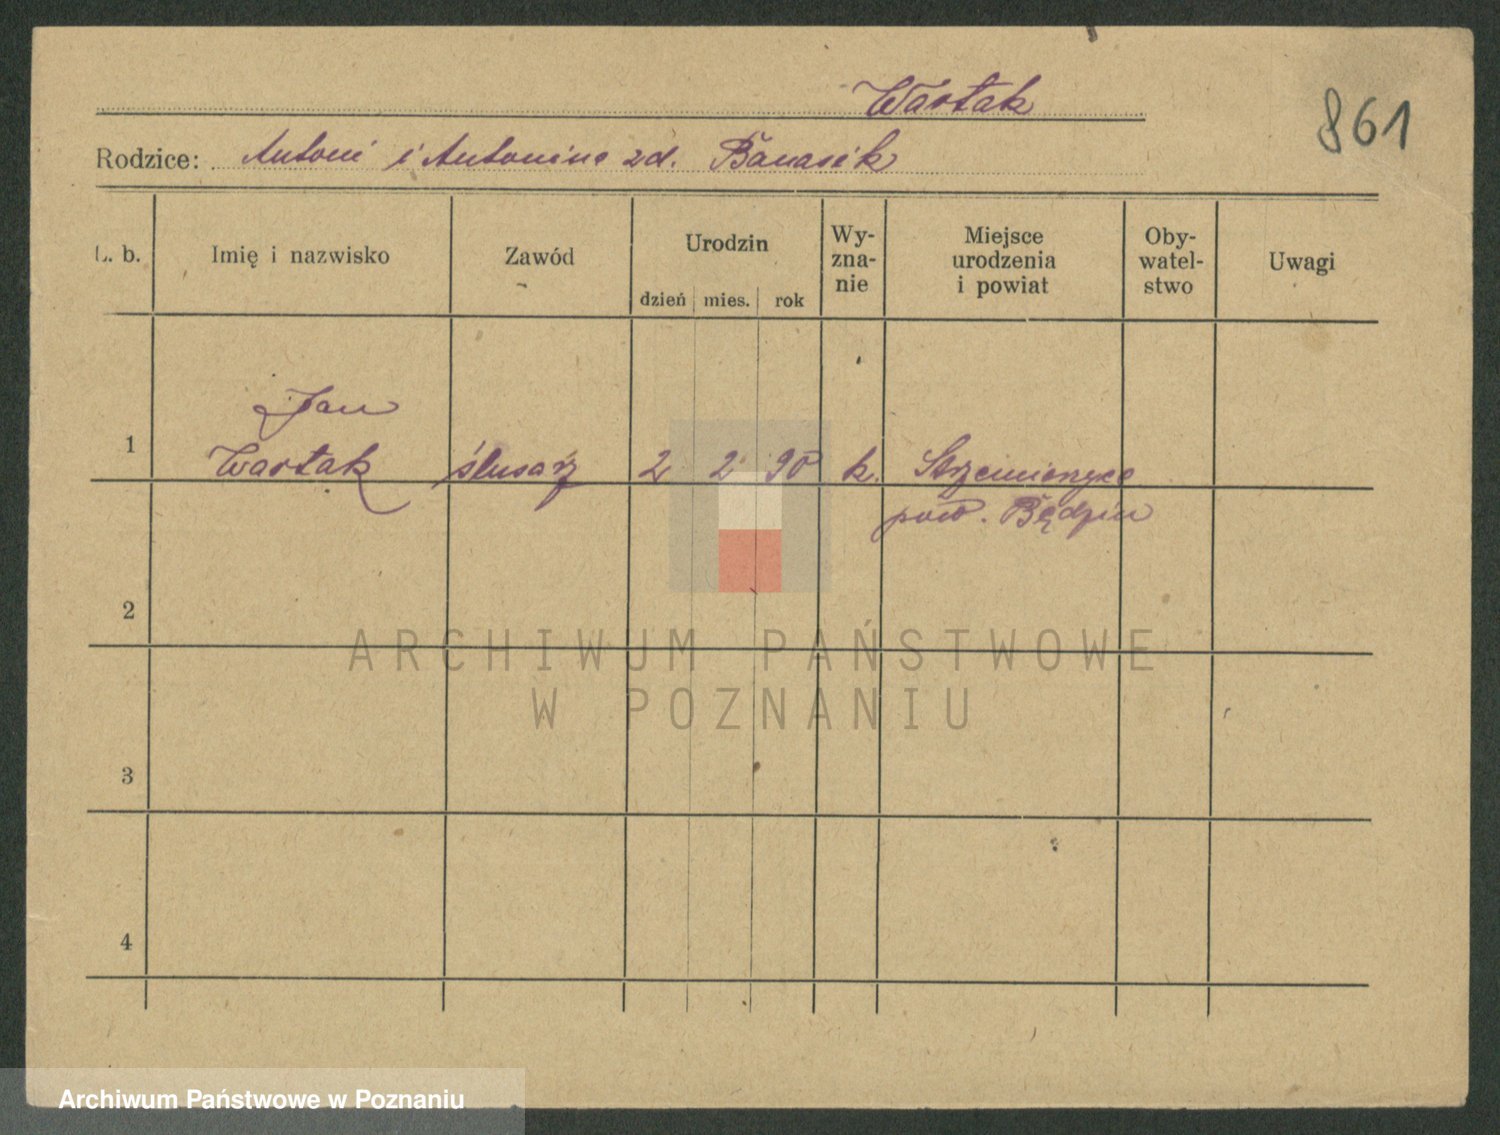 Wartak
861
Rodzice: Antoni i Antonina zd. Banasik
L. b.
Imię i nazwisko
Zawód
Urodzin
dzień mies. rok
Wy-
zna-
nie
Miejsce
urodzenia
i powiat
Oby-
watel-
stwo
Uwagi
1
Jan
Wartak
ślusarz
2 2 90
k.
Strzemieszyce
pow. Będzin
2
3
4
ARCHIWUM PAŃSTWOWE
W POZNANIU
Archiwum Państwowe w Poznaniu